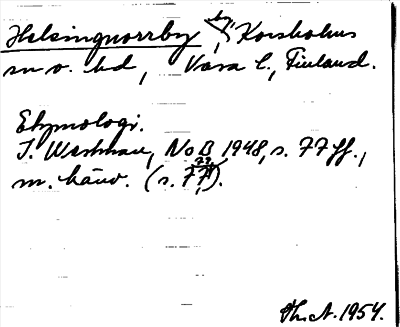 Helsingnorrby, by, Korsholms
sn o. hd, Vasa l., Finland.
Etymologi.
I. Westman, NoB 1948, s. 77 ff.,
m. hänv. (s. 77).
Th.A. 1954.